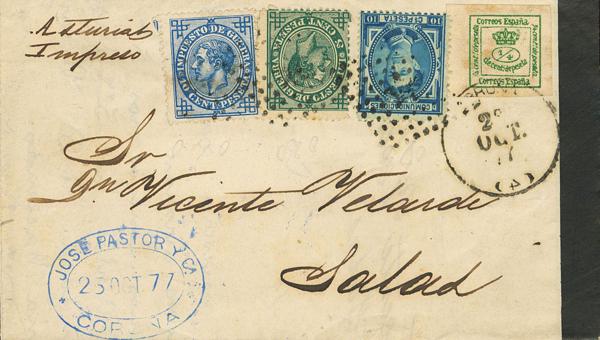 Asturias
Impreso
IMPUESTO DE GUERRA
10 CENT. PESETA 10
5 CENT PESETA 5
IMPTO DE GUERRA
COMUNICACIONES
10 C. PESETA 10
Correos España
1/4
de cent. de peseta
Correos España
OCT.
77
(A)
Sr
Dn Vicente Velarde
Salas
JOSE PASTOR Y Ca
25 OCT. 77
CORUÑA